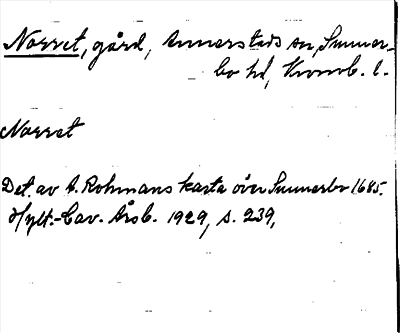 Norret, gård, Annerstads sn, Sunner-
bo hd, Kronob. l.
Norret
Det. av A. Rohmans karta över Sunnerbo 1685.
Hylt.-Cav. Årsb. 1929, s. 239,